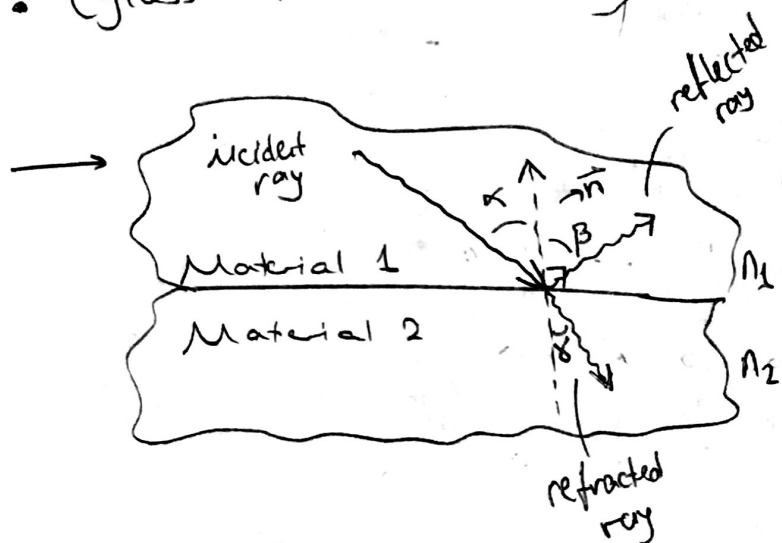 • (glass
reflected
ray
incident
ray
α
n⃗
β
Material 1
n1
Material 2
γ
n2
refracted
ray